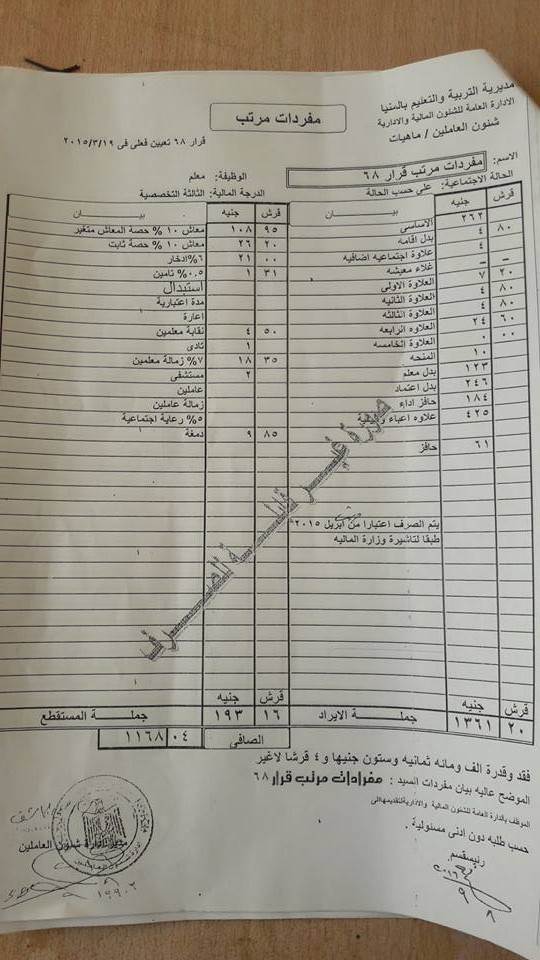 مديرية التربية والتعليم بالمنيا
الادارة العامة للشئون المالية والادارية
شئون العاملين / ماهيات
مفردات مرتب
قرار ٦٨ تعيين فعلى فى ٢٠١٥/٣/١٩
الاسم: مفردات مرتب قرار ٦٨
الوظيفة: معلم
الحالة الاجتماعية: على حسب الحالة
الدرجة المالية: الثالثة التخصصية
قرش جنيه بيان قرش جنيه بيان
٨٠ ٢٦٢ الاساسى ٩٥ ١٠٨ معاش ١٠ % حصة المعاش متغير
٤ بدل اقامه ٢٠ ٢٦ معاش ١٠ % حصة ثابت
– ٤ علاوة اجتماعيه اضافيه ٠٠ ٢١ ٦% ادخار
– – غلاء معيشه ٣١ ١ ٠.٥% تامين
٢٠ ٧ العلاوة الاولى استبدال
٨٠ ٤ العلاوة الثانيه مدة اعتبارية
٨٠ ٤ العلاوة الثالثه اعارة
٦٠ ٢٤ العلاوه الرابعه ٥٠ ٤ نقابة معلمين
٠٠ ٠ العلاوة الخامسه ١ نادى
١٠ المنحه ٣٥ ١٨ ٧% زمالة معلمين
١٢٣ بدل معلم ٢ مستشفى
٢٤٦ بدل اعتماد عاملين
١٨٤ حافز اداء زمالة عاملين
٤٢٥ علاوه اعباء ٥% رعاية اجتماعية
٨٥ ٩ دمغة
٦١ حافز
يتم الصرف اعتبارا من ابريل ٢٠١٥
طبقا لتاشيرة وزارة الماليه
صورة غير قابلة للصرف
قرش جنيه قرش جنيه
٢٠ ١٣٦١ جملة الايراد ١٦ ١٩٣ جملة المستقطع
الصافى ٠٤ ١١٦٨
فقد وقدرة الف ومائه ثمانيه وستون جنيها و ٤ قرشا لاغير
الموضح عاليه بيان مفردات السيد : مفرادات مرتب قرار ٦٨
الموظف بالادارة العامة للشئون المالية والادارية لتقديمها الى
حسب طلبه دون ادنى مسئولية .
رئيس قسم
مدير ادارة شئون العاملين